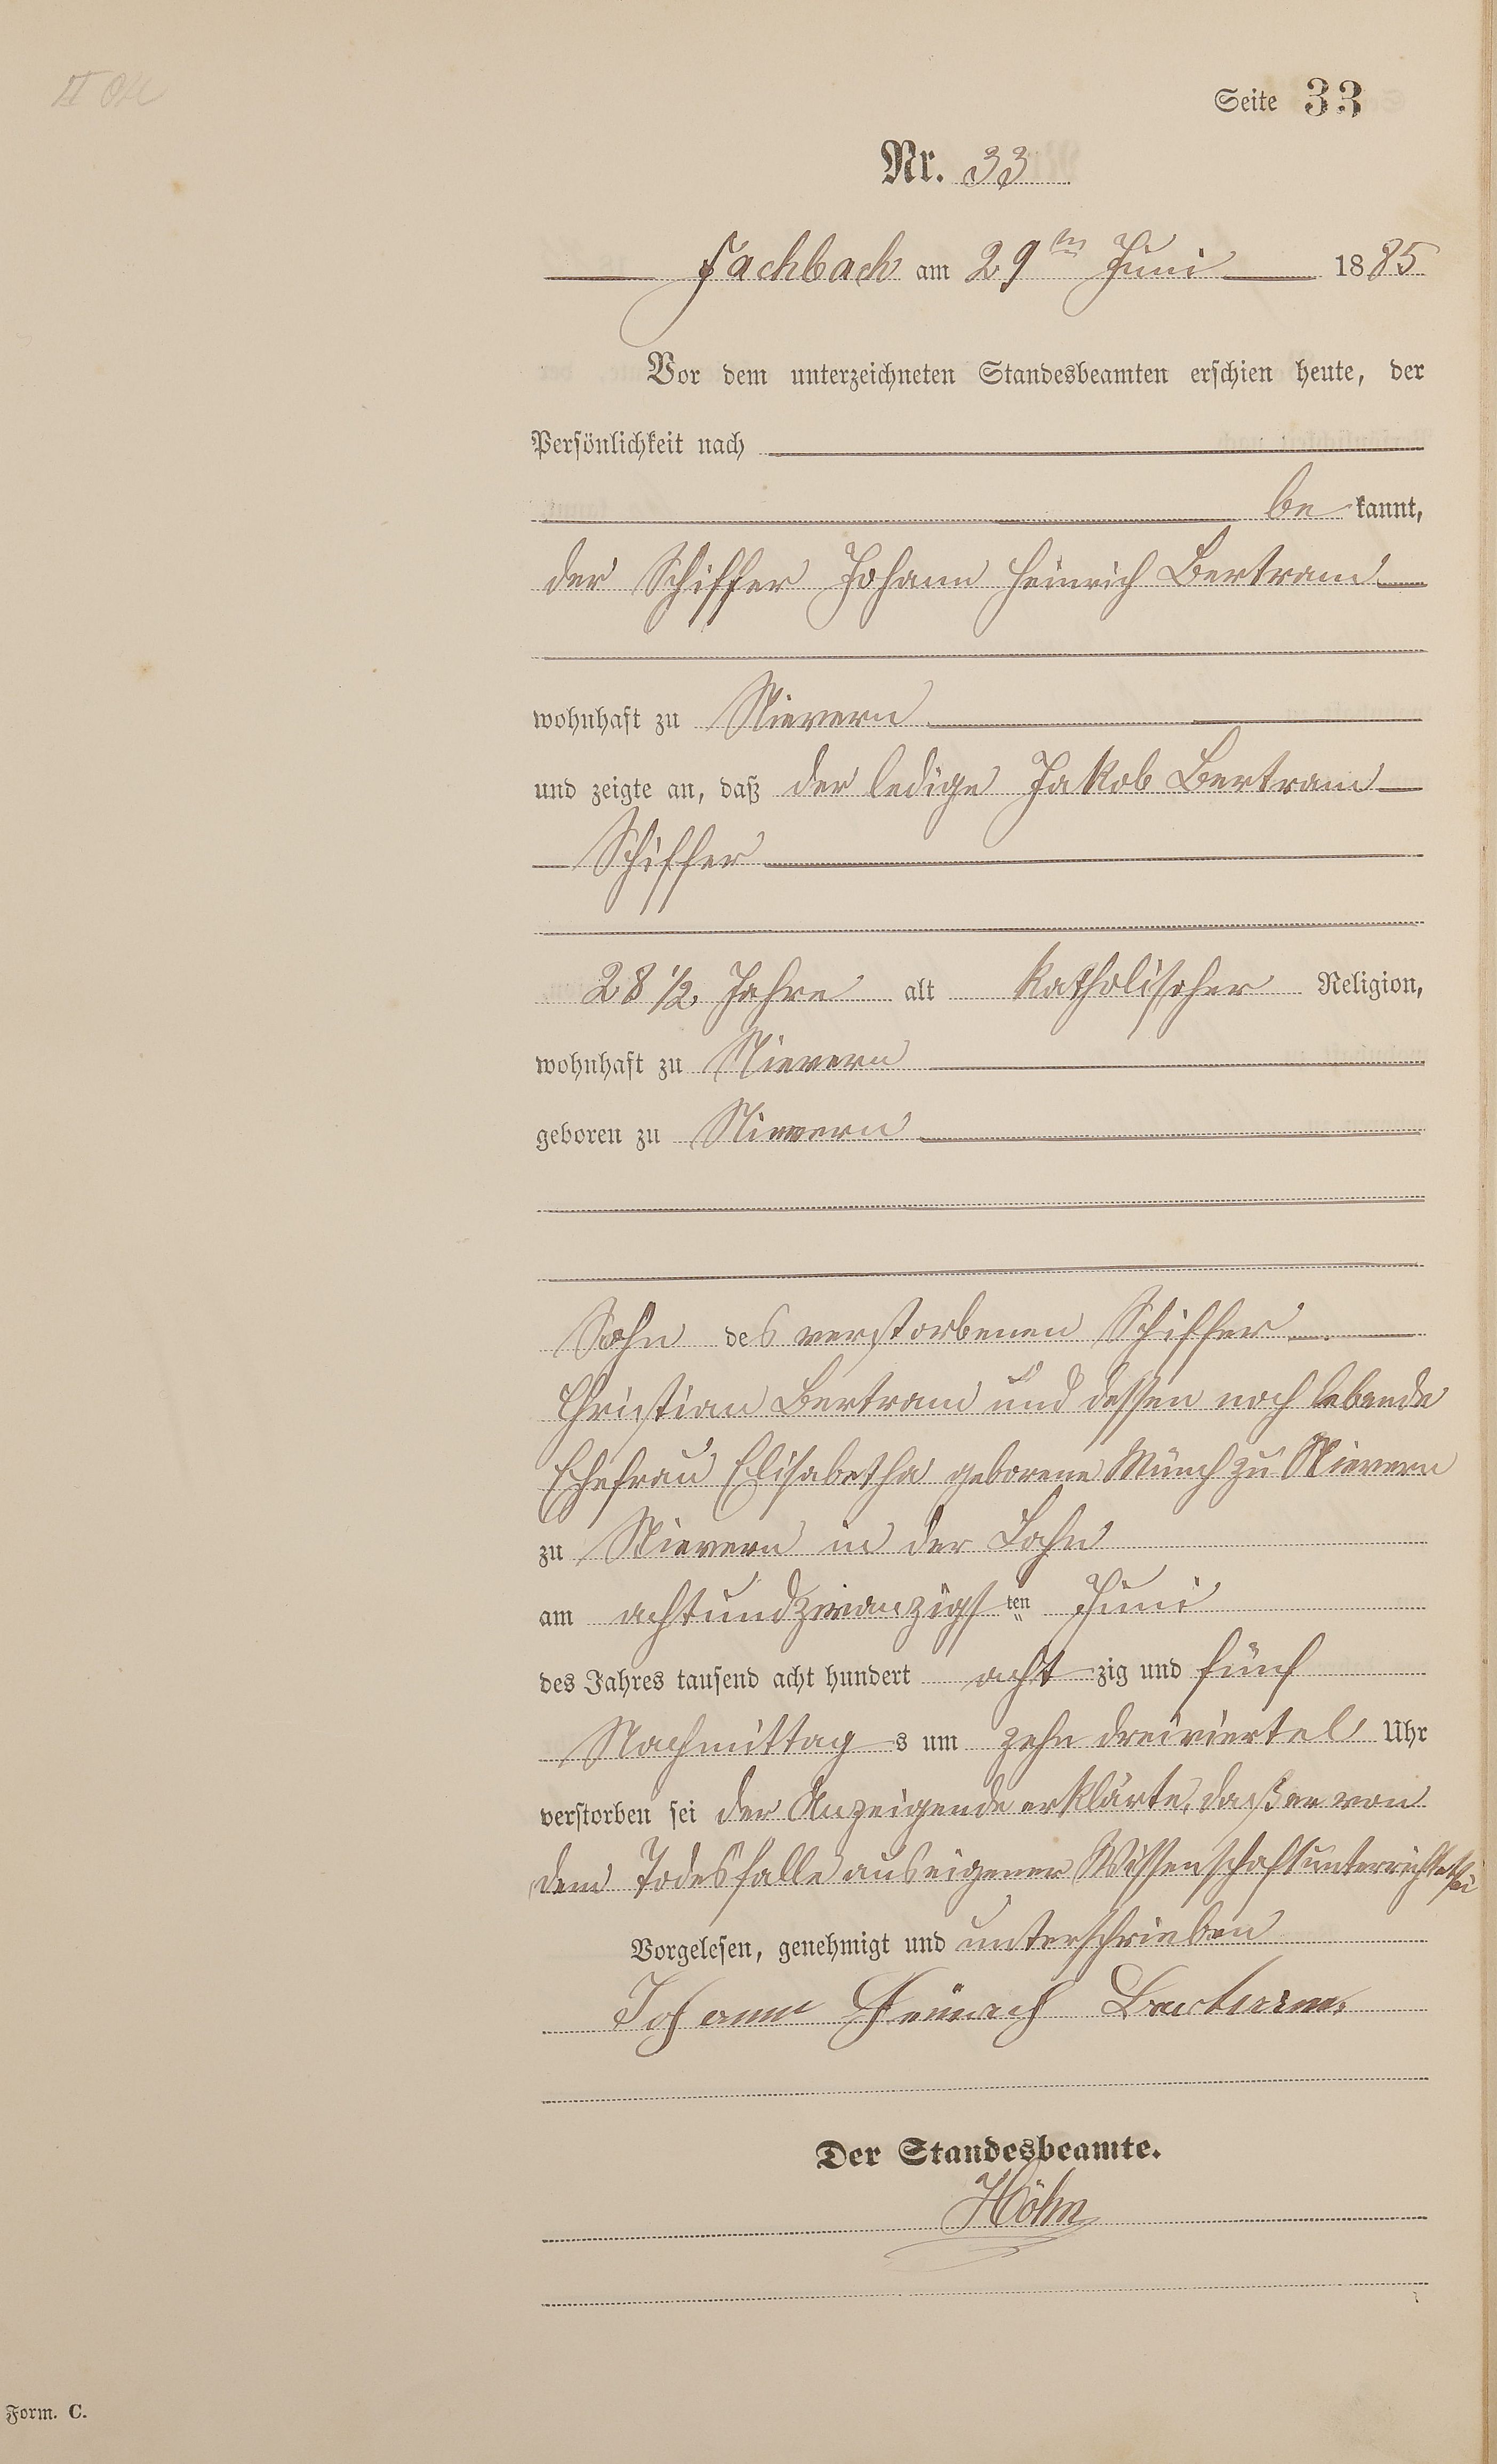 Seite 33
Nr. 33
Fachbach am 29ten Juni 1885
Vor dem unterzeichneten Standesbeamten erschien heute, der
Persönlichkeit nach
be kannt,
der Schiffer Johann Heinrich Bertram
wohnhaft zu Nievern
und zeigte an, daß der ledige Jakob Bertram
Schiffer
28 1/2 Jahre alt katholischer Religion,
wohnhaft zu Nievern
geboren zu Nievern
Sohn des verstorbenen Schiffer
Christian Bertram und dessen noch lebende
Ehefrau Elisabetha geborene Münch zu Nievern
zu Nievern in der Lahn
am achtundzwanzigsten Juni
des Jahres tausend acht hundert achtzig und fünf
Nachmittags um zehn dreiviertel Uhr
verstorben sei der Anzeigende erklärte, daß er von
dem Todesfalle aus eigener Wissenschaft unterrichtet sei
Vorgelesen, genehmigt und unterschrieben
Johann Heinrich Bertram
Der Standesbeamte.
Höhn
Form. C.